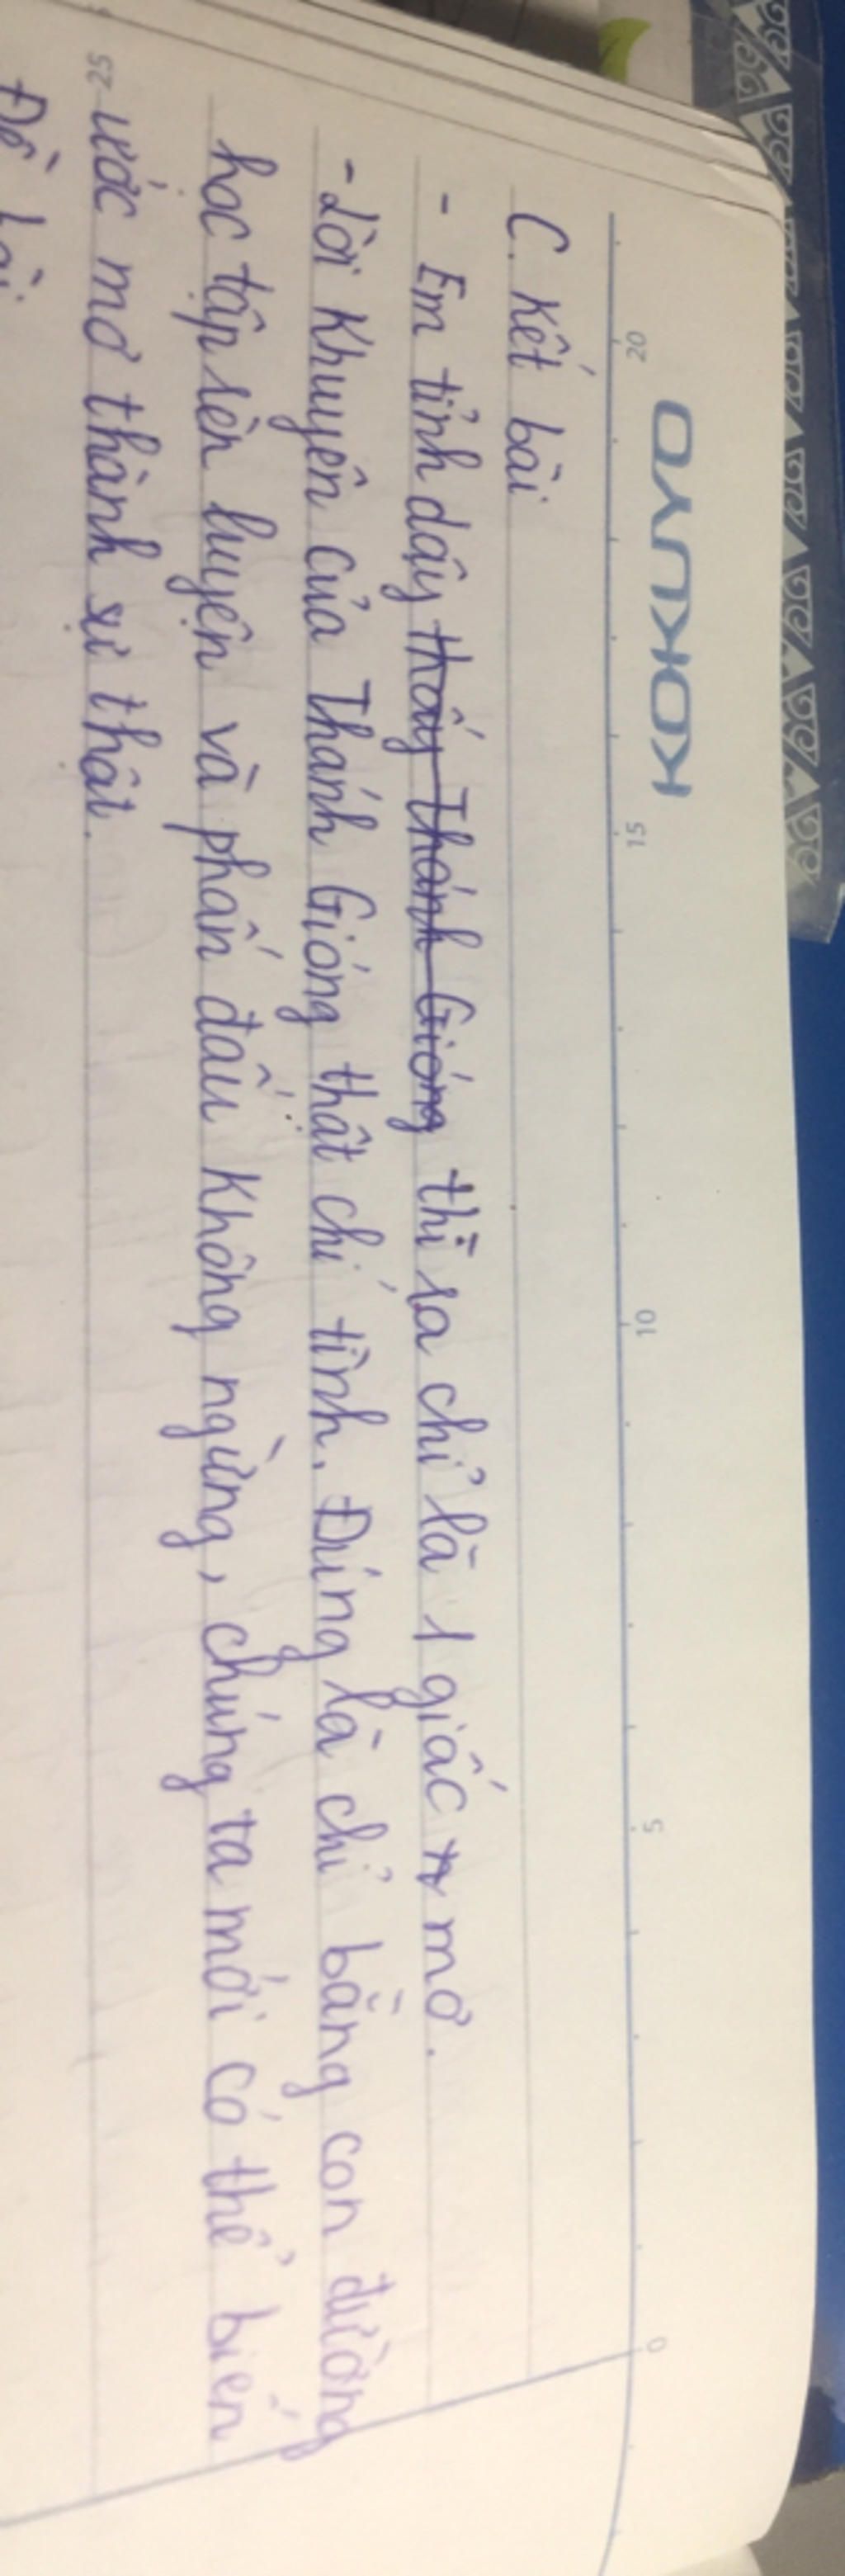 KOKUYO
20 15 10 5 0
C. Kết bài
- Em tỉnh dậy thấy Thánh Gióng thì ra chỉ là 1 giấc mơ.
- Lời khuyên của Thánh Gióng thật chí tình. Đúng là chỉ bằng con đường
học tập rèn luyện và phấn đấu không ngừng, chúng ta mới có thể biến
25 ước mơ thành sự thật.
Đề bài